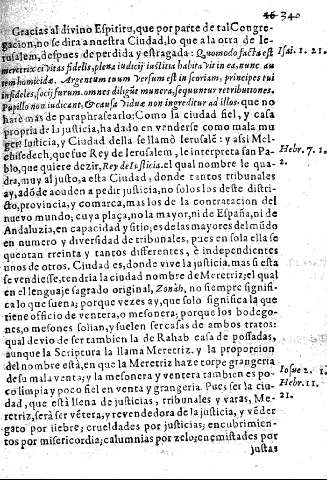 16 340
Gracias al divino Espiritu, que por parte de tal Congre-
gacion, no se dira a nuestra Ciudad, lo que a la otra de Ie-
rusalem, despues de perdida y estragada: Quomodo facta est
meretrix civitas fidelis, plena iudicij iustitia habitavit in ea, nunc au
tem homicidæ. Argentum tuum versum est in scoriam, principes tui
infideles, socij furum. omnes diligunt munera, sequuntur retributiones.
Pupillo non iudicant, & causa viduæ non ingreditur ad illos. que no
harè mas de paraphrasearlo: Como la ciudad fiel, y casa
propria de la justicia, ha dado en venderse como mala mu
ger? Iusticia, y Ciudad della se llamò Ierusalẽ: y assi Mel-
chisedech, que fue Rey de Ierusalem, le interpreta san Pa-
blo, que quiere dezir, Rey de Iusticia. el qual nombre le qua-
dra, muy al justo, a esta Ciudad, donde tantos tribunales
ay, adõde acuden a pedir justicia, no solos los deste distri-
cto, provincia, y comarca, mas los de la contratacion del
nuevo mundo, cuya plaça, no la mayor, ni de España, ni de
Andaluzia, en capacidad y sitio; es de las mayores del mũdo
en numero y diversidad de tribunales, pues en sola ella se
quentan treinta y tantos differentes, è independentes
unos de otros. Ciudad es, donde vive la justicia, mas si esta
se vendiesse, tendria la ciudad nombre de Meretriz; el qual
en el lenguaje sagrado original, Zonàh, no siempre signifi-
ca lo que suena; porque vezes ay, que solo significa la que
tiene officio de ventera, o mesonera; porque los bodego-
nes, o mesones solian, y suelen ser casas de ambos tratos:
qual devio de ser tambien la de Rahab casa de possadas,
aunque la Scriptura la llama Meretriz. y la proporcion
del nombre està, en que la Meretriz haze torpe grangeria
de su mala venta; y la mesonera y ventera tambien es po-
co limpia y poco fiel en venta y grangeria. Pues ser la ciu-
dad, que està llena de justicias, tribunales y varas, Me-
retriz, serà ser vẽtera, y revendedora de la justicia, y vẽder
gato por liebre; crueldades por justicias; encubrimien-
tos por misericordia; calumnias por zelo; enemistades por
justas
Isai. 1. 21.
Hebr. 7. 1.
Iosue 2. 1.
Hebr. 11.
21.